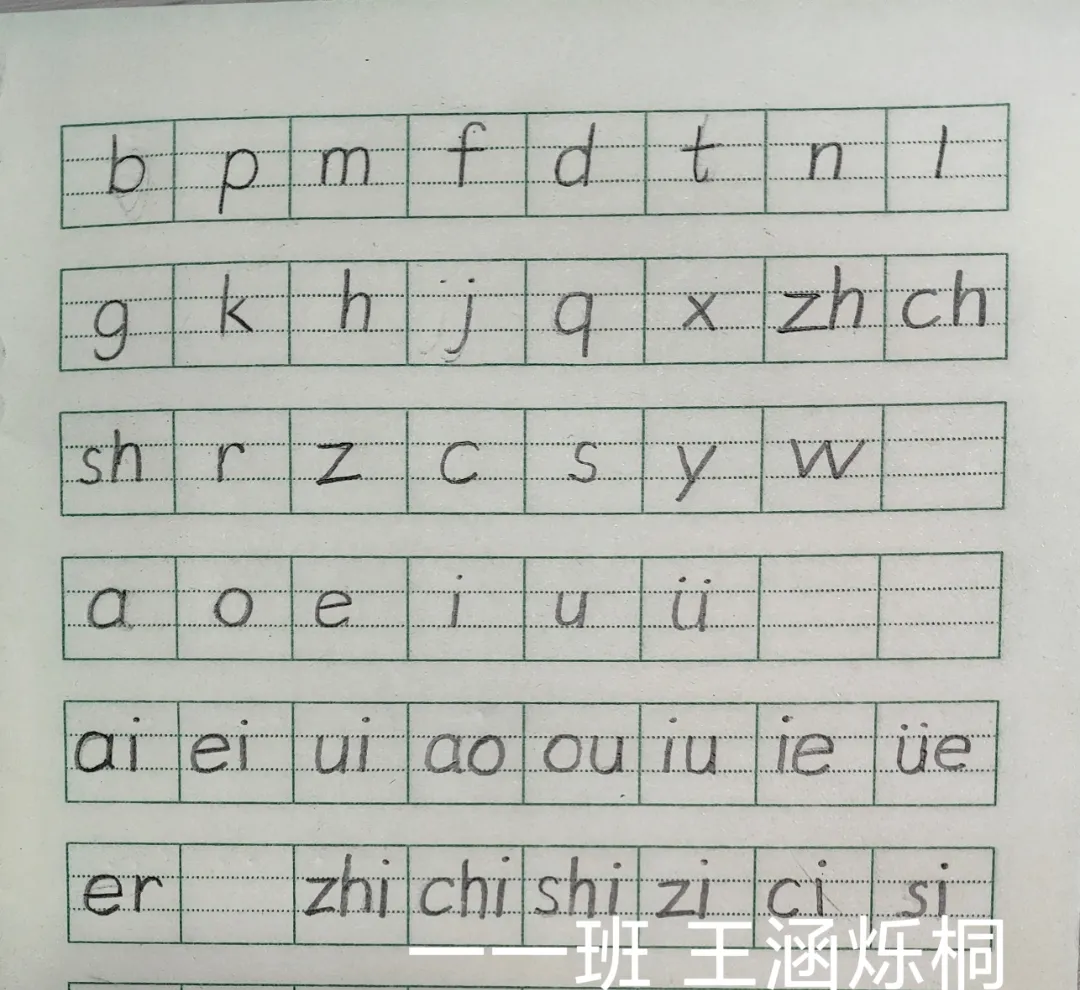 b p m f d t n l
g k h j q x zh ch
sh r z c s y w
a o e i u ü
ai ei ui ao ou iu ie üe
er zhi chi shi zi ci si
一一班 王涵烁桐